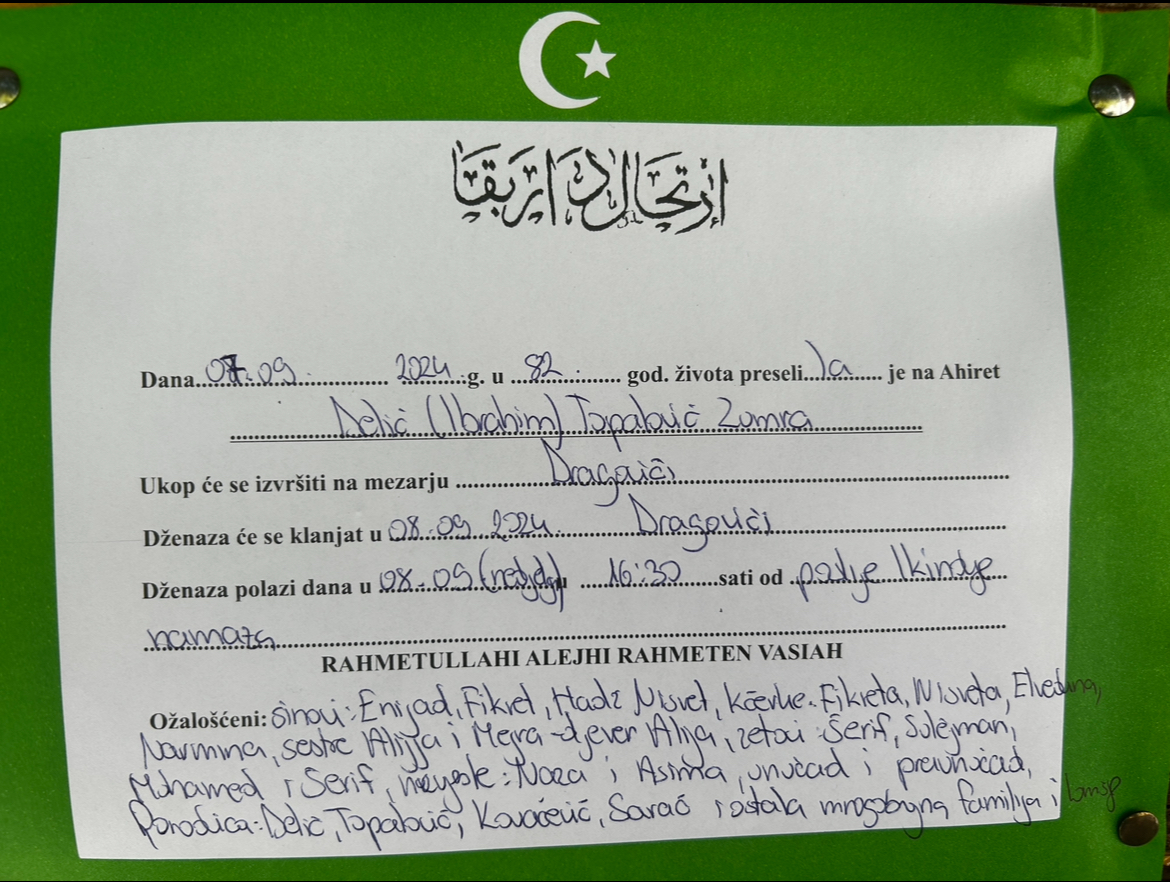 إرتحال دار بقا
Dana 07.09. 2024 .g. u 82 god. života preseli la je na Ahiret
Delić (Ibrahim) Topalović Zumra
Ukop će se izvršiti na mezarju Dragovići
Dženaza će se klanjat u 08.09.2024. Dragovići
Dženaza polazi dana u 08.09 (nedjelju) 16:30 sati od poslije Ikindije
namaza
RAHMETULLAHI ALEJHI RAHMETEN VASIAH
Ožalošćeni: sinovi: Enijad, Fikret, Hadž Nisvet, kćerke: Fikreta, Nisveta, Elvedina,
Narmina, sestre Alija i Mejra djever Alija, zetovi: Šerif, Sulejman,
Muhamed i Šerif, nevjeste: Naza i Asima, unučad i praunučad,
Porodica: Delić, Topalović, Kovačević, Sarač i ostala mnogobrojna familija i